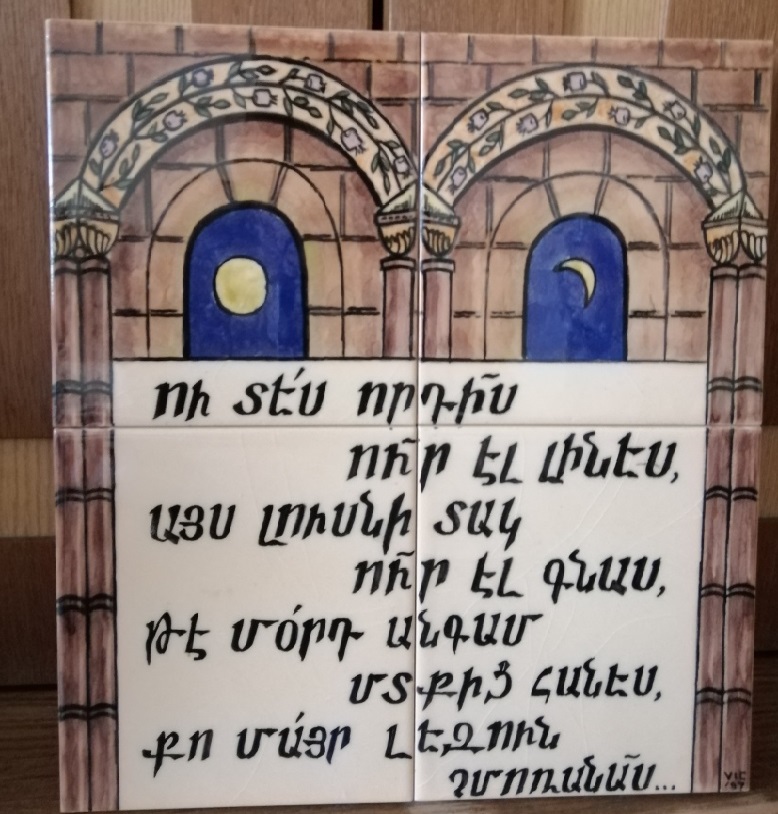 ՈՒ ՏԵ՛Ս ՈՐԴԻ՜Ս
ՈՒ՜Ր ԷԼ ԼԻՆԵՍ,
ԱՅՍ ԼՈՒՍՆԻ ՏԱԿ
ՈՒ՜Ր ԷԼ ԳՆԱՍ,
ԹԷ ՄՕ՛ՐԴ ԱՆԳԱՄ
ՄՏՔԻՑ ՀԱՆԵՍ,
ՔՈ ՄԱ՛ՅՐ ԼԵԶՈՒՆ
ՉՄՈՌԱՆԱ՜Ս...
VIC
'97